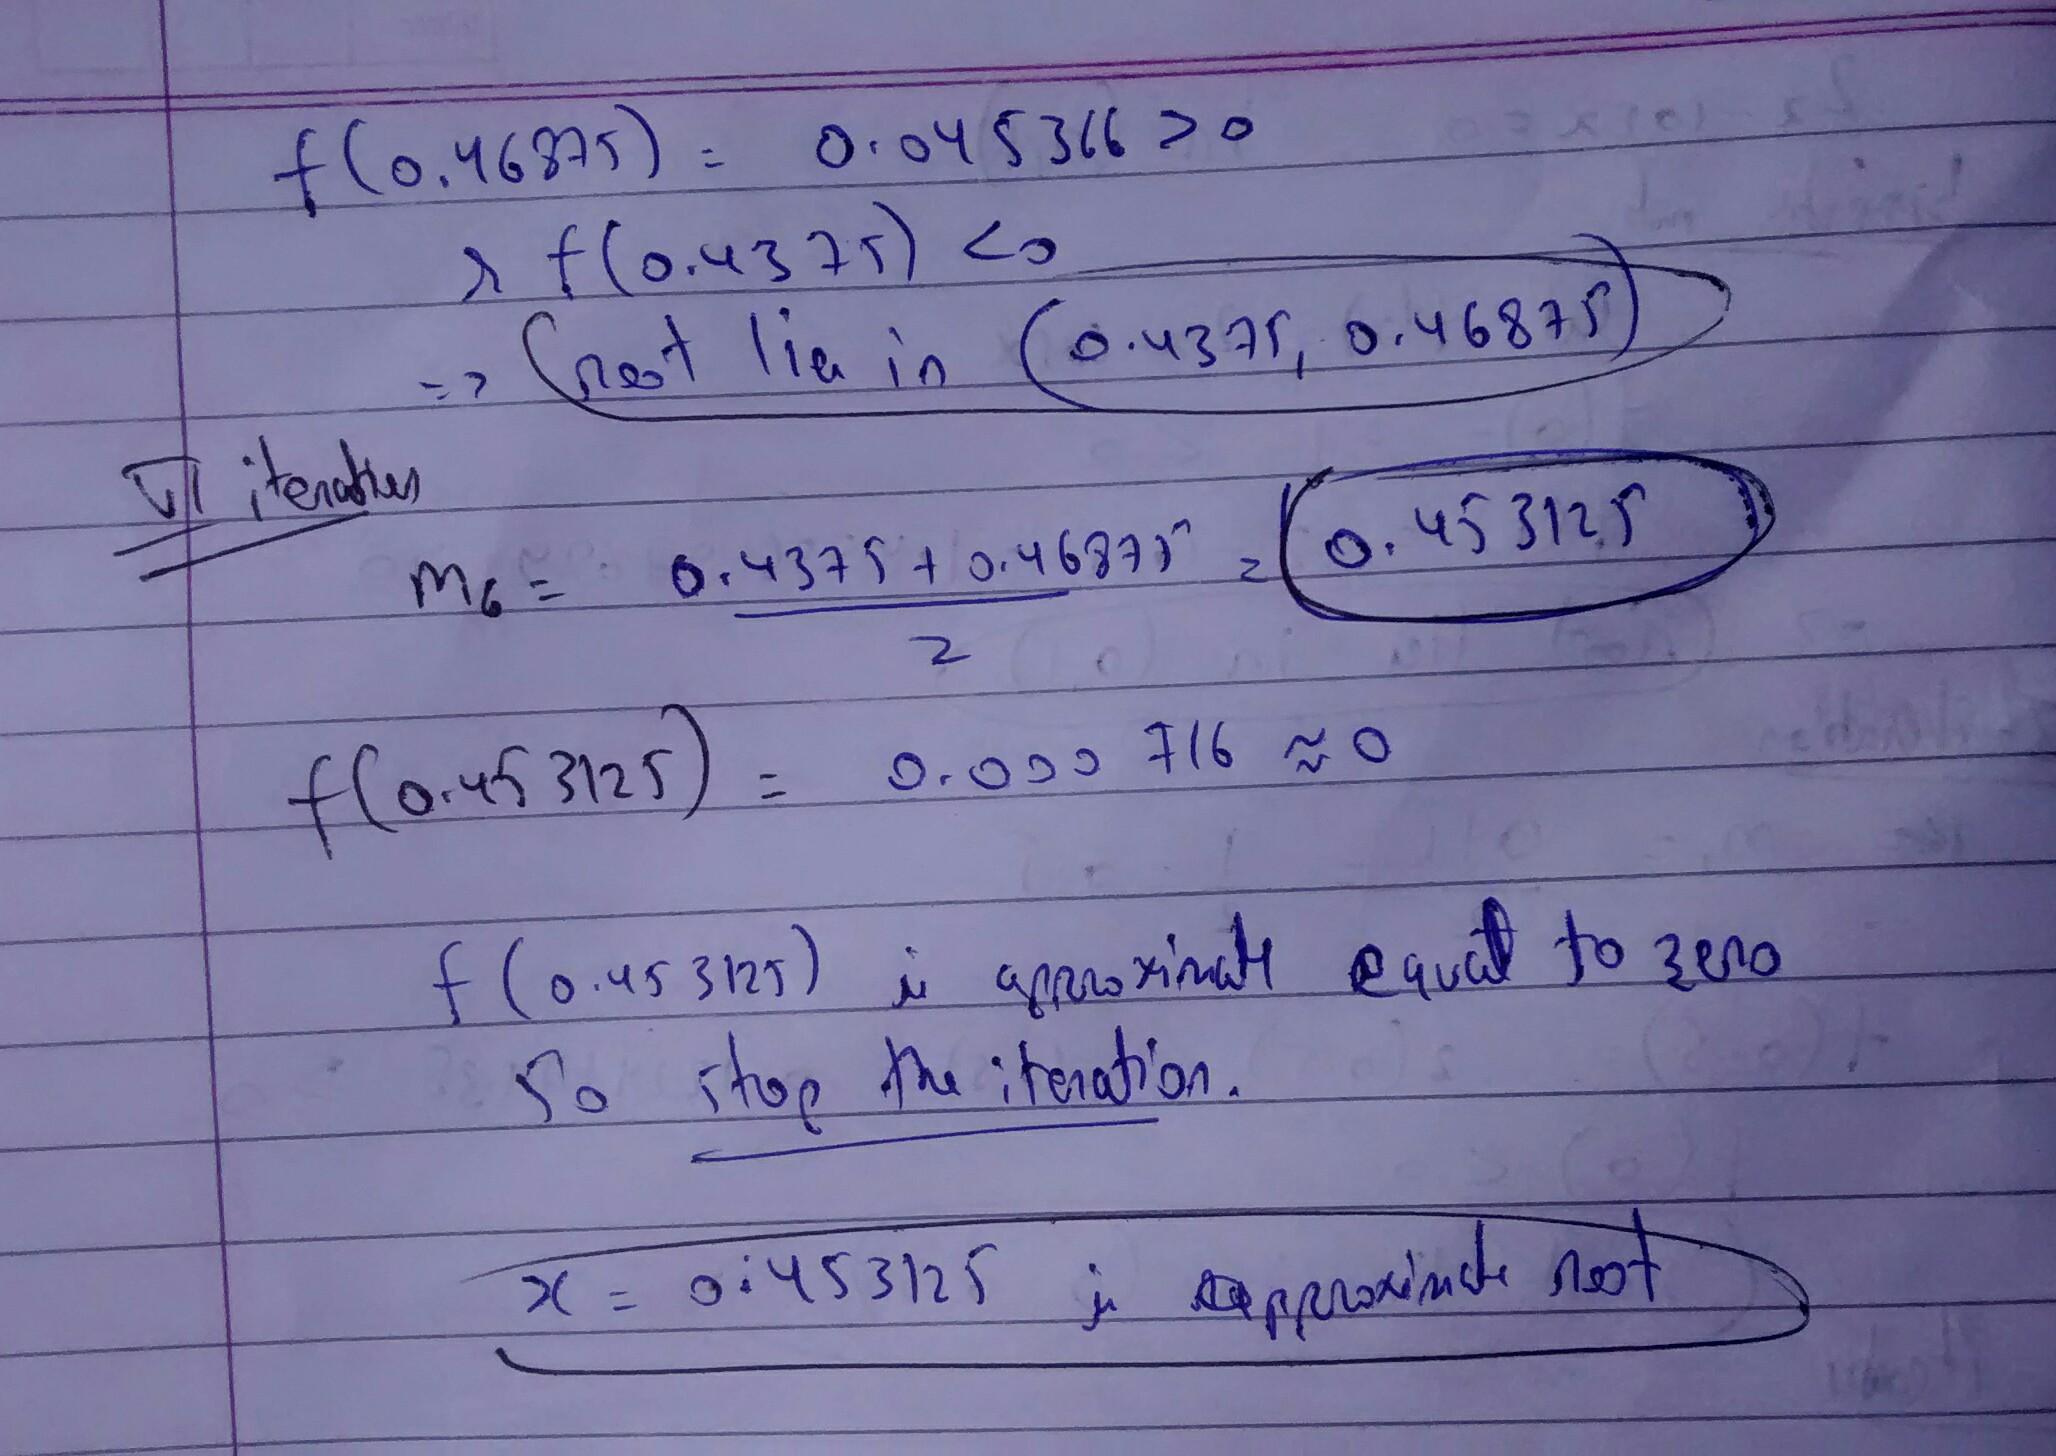 f(0.46875) = 0.045366 > 0
& f(0.4375) < 0
=> root lie in (0.4375, 0.46875)
VI iteration
m6 = 0.4375 + 0.46875 = 0.453125
2
f(0.453125) = 0.000716 ≈ 0
f(0.453125) is approximate equal to zero
So stop the iteration.
x = 0.453125 is approximate root